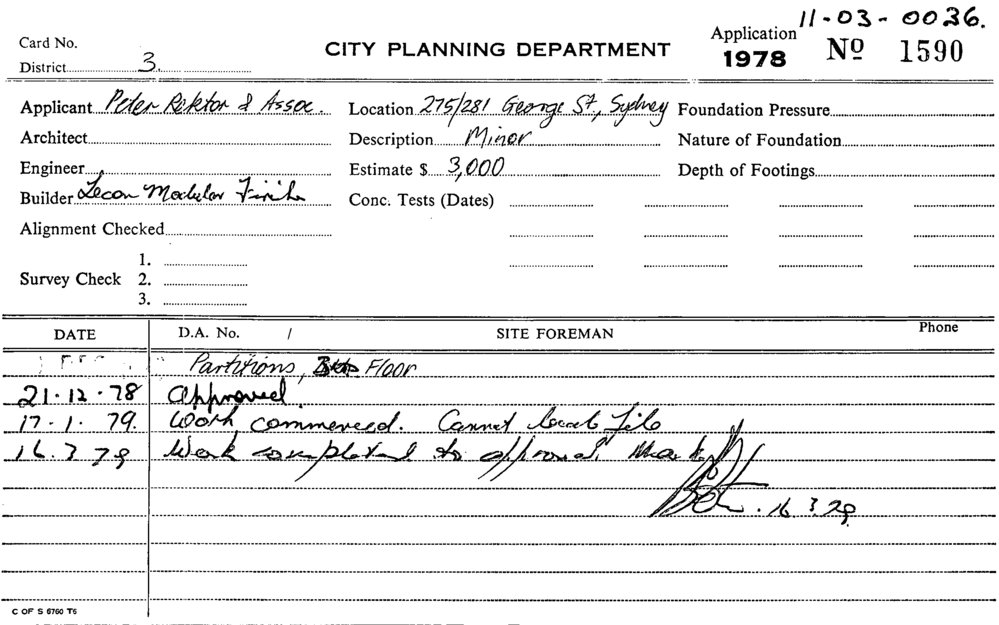 11-03-0036.
Card No.
CITY PLANNING DEPARTMENT
Application
1978 No 1590
District 3.
Applicant Peter Rektor & Assoc. Location 275/281 George St., Sydney Foundation Pressure
Architect Description Minor Nature of Foundation
Engineer Estimate $ 3,000 Depth of Footings
Builder Lecon Modular Conc. Tests (Dates)
Alignment Checked
1.
Survey Check 2.
3.
DATE D.A. No. / SITE FOREMAN Phone
Partitions, Floor
21.12.78 Approved.
17.1.79. Work commenced. Cannot locate File
16.3.79 Work completed to approval.
16.3.79.
C OF S 6760 T5